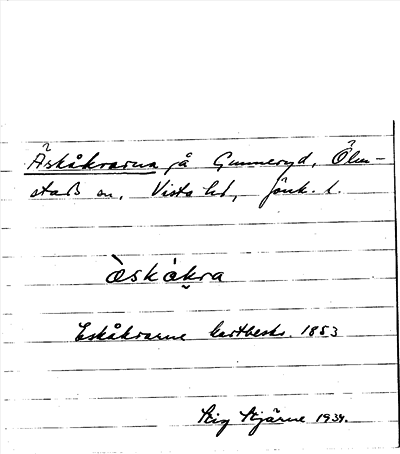 Äskåkrarna på Gunneryd, Ölm-
stads sn, Vista hd, Jönk. l.
òskåkra
Eskåkrarne kartbeskr. 1853
Stig Stjärne 1934.